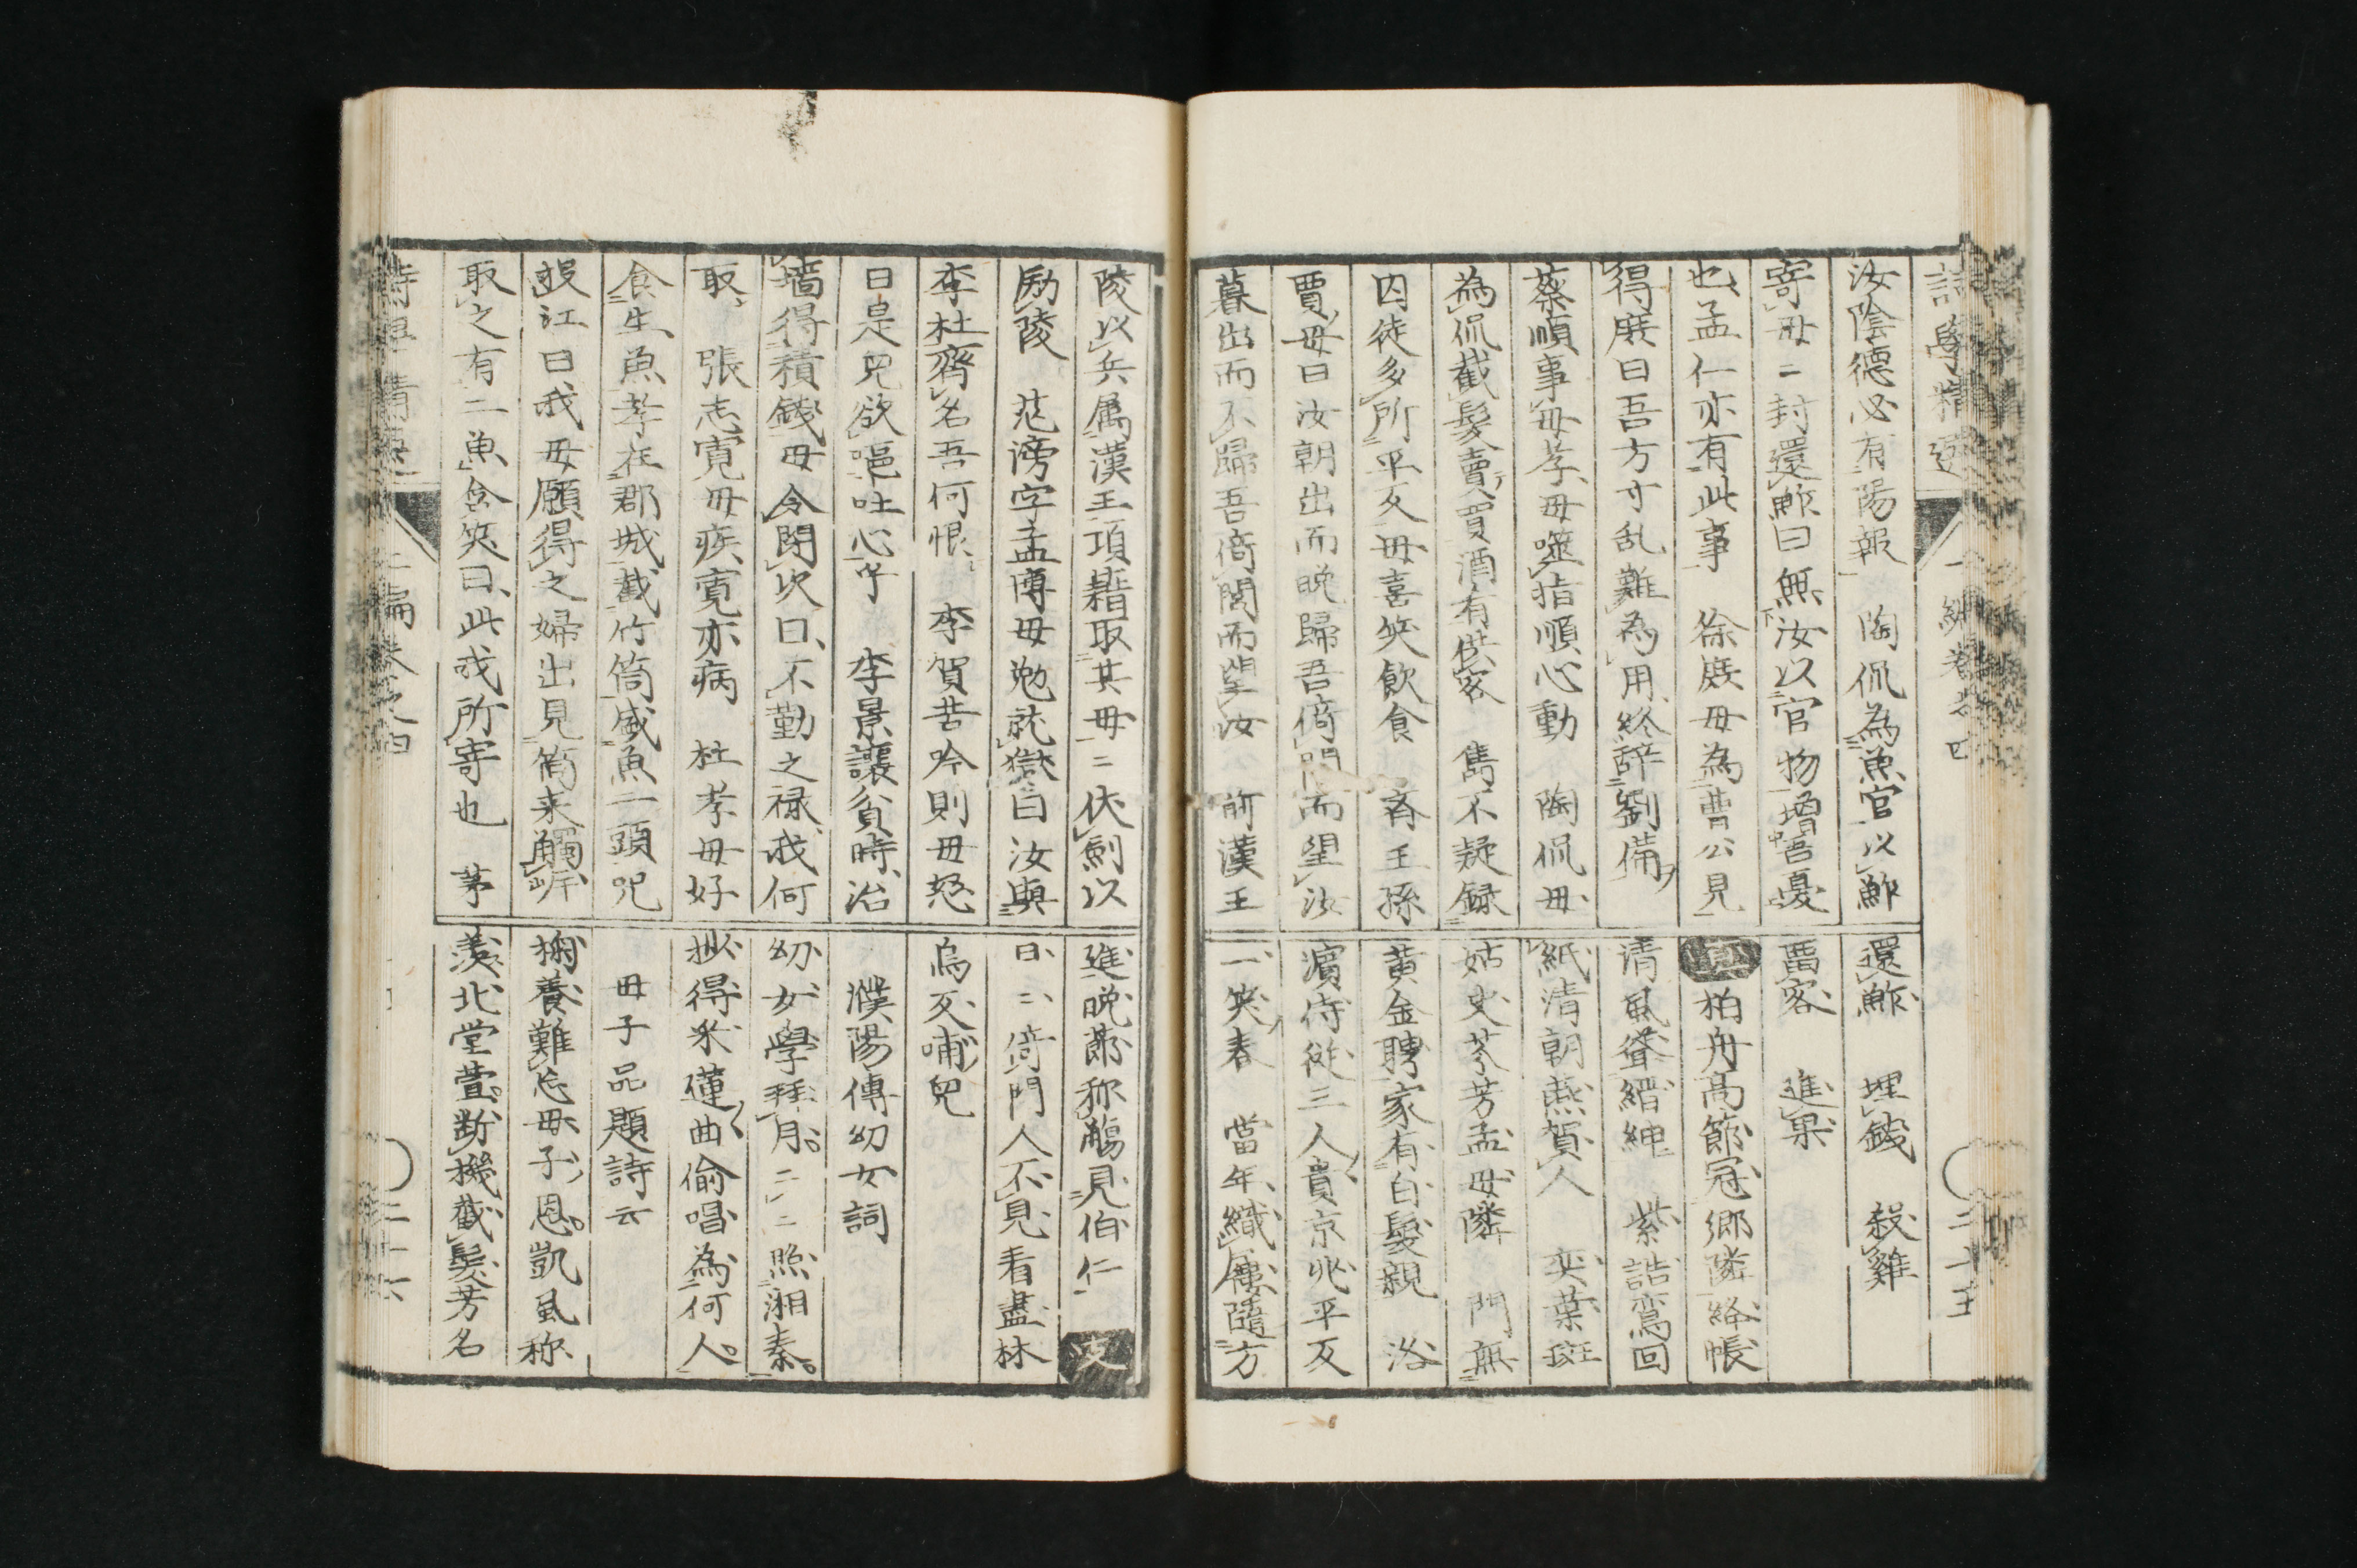 汝陰德必有陽報　陶侃為魚官以鮓
寄母二封還鮓曰無汝以官物增吾憂
也孟仁亦有此事　徐庶母為曹公見
得庶曰吾方寸乱難為用終辞劉備
蔡順事母孝母噬指順心動　陶侃母
為侃截髮賣買酒有供客　雋不疑録
囚徒多所平反母喜笑飲食　斉王孫
賈母曰汝朝出而晩歸吾倚門而望汝
暮出而不歸吾倚閭而望汝　前漢王
還鮓　埋錢　殺雞
畱客　進果
柏舟高節冠郷隣絳帳
清風聳縉紳　紫誥鸞回
紙清朝燕賀人　奕葉斑
姑史芩芳孟母隣　門無
黄金聘家有白髮親　浴
濵侍從三人貴京兆平反
一笑春　當年織屨隨方
陵以兵属漢王項籍取其母二伏劍以
励陵　范滂字孟博母勉就獄曰汝與
李杜齊名吾何恨　李賀苦吟則母怒
曰是兒欲嘔吐心乎　李景讓貧時治
墻得積錢母令閉坎曰不勤之禄我何
取　張志寛母疾寛亦病　杜孝母好
食生魚孝在郡城截竹筒盛魚二頭咒
投江曰我母願得之婦出見筒来觸岸
取之有二魚含笑曰此我所寄也　茅
進晩莭称觴見伯仁
日二倚門人不見看盡林
烏反哺兒
濮陽傳幼女詞
幼女學拜月二二照湘秦
抄得米蓮曲偷唱為何人
母子品題詩云
掬養難忘母子恩凱風称
羙北堂萱断機截髮芳名
詩學精選
上編巻之四
二十六